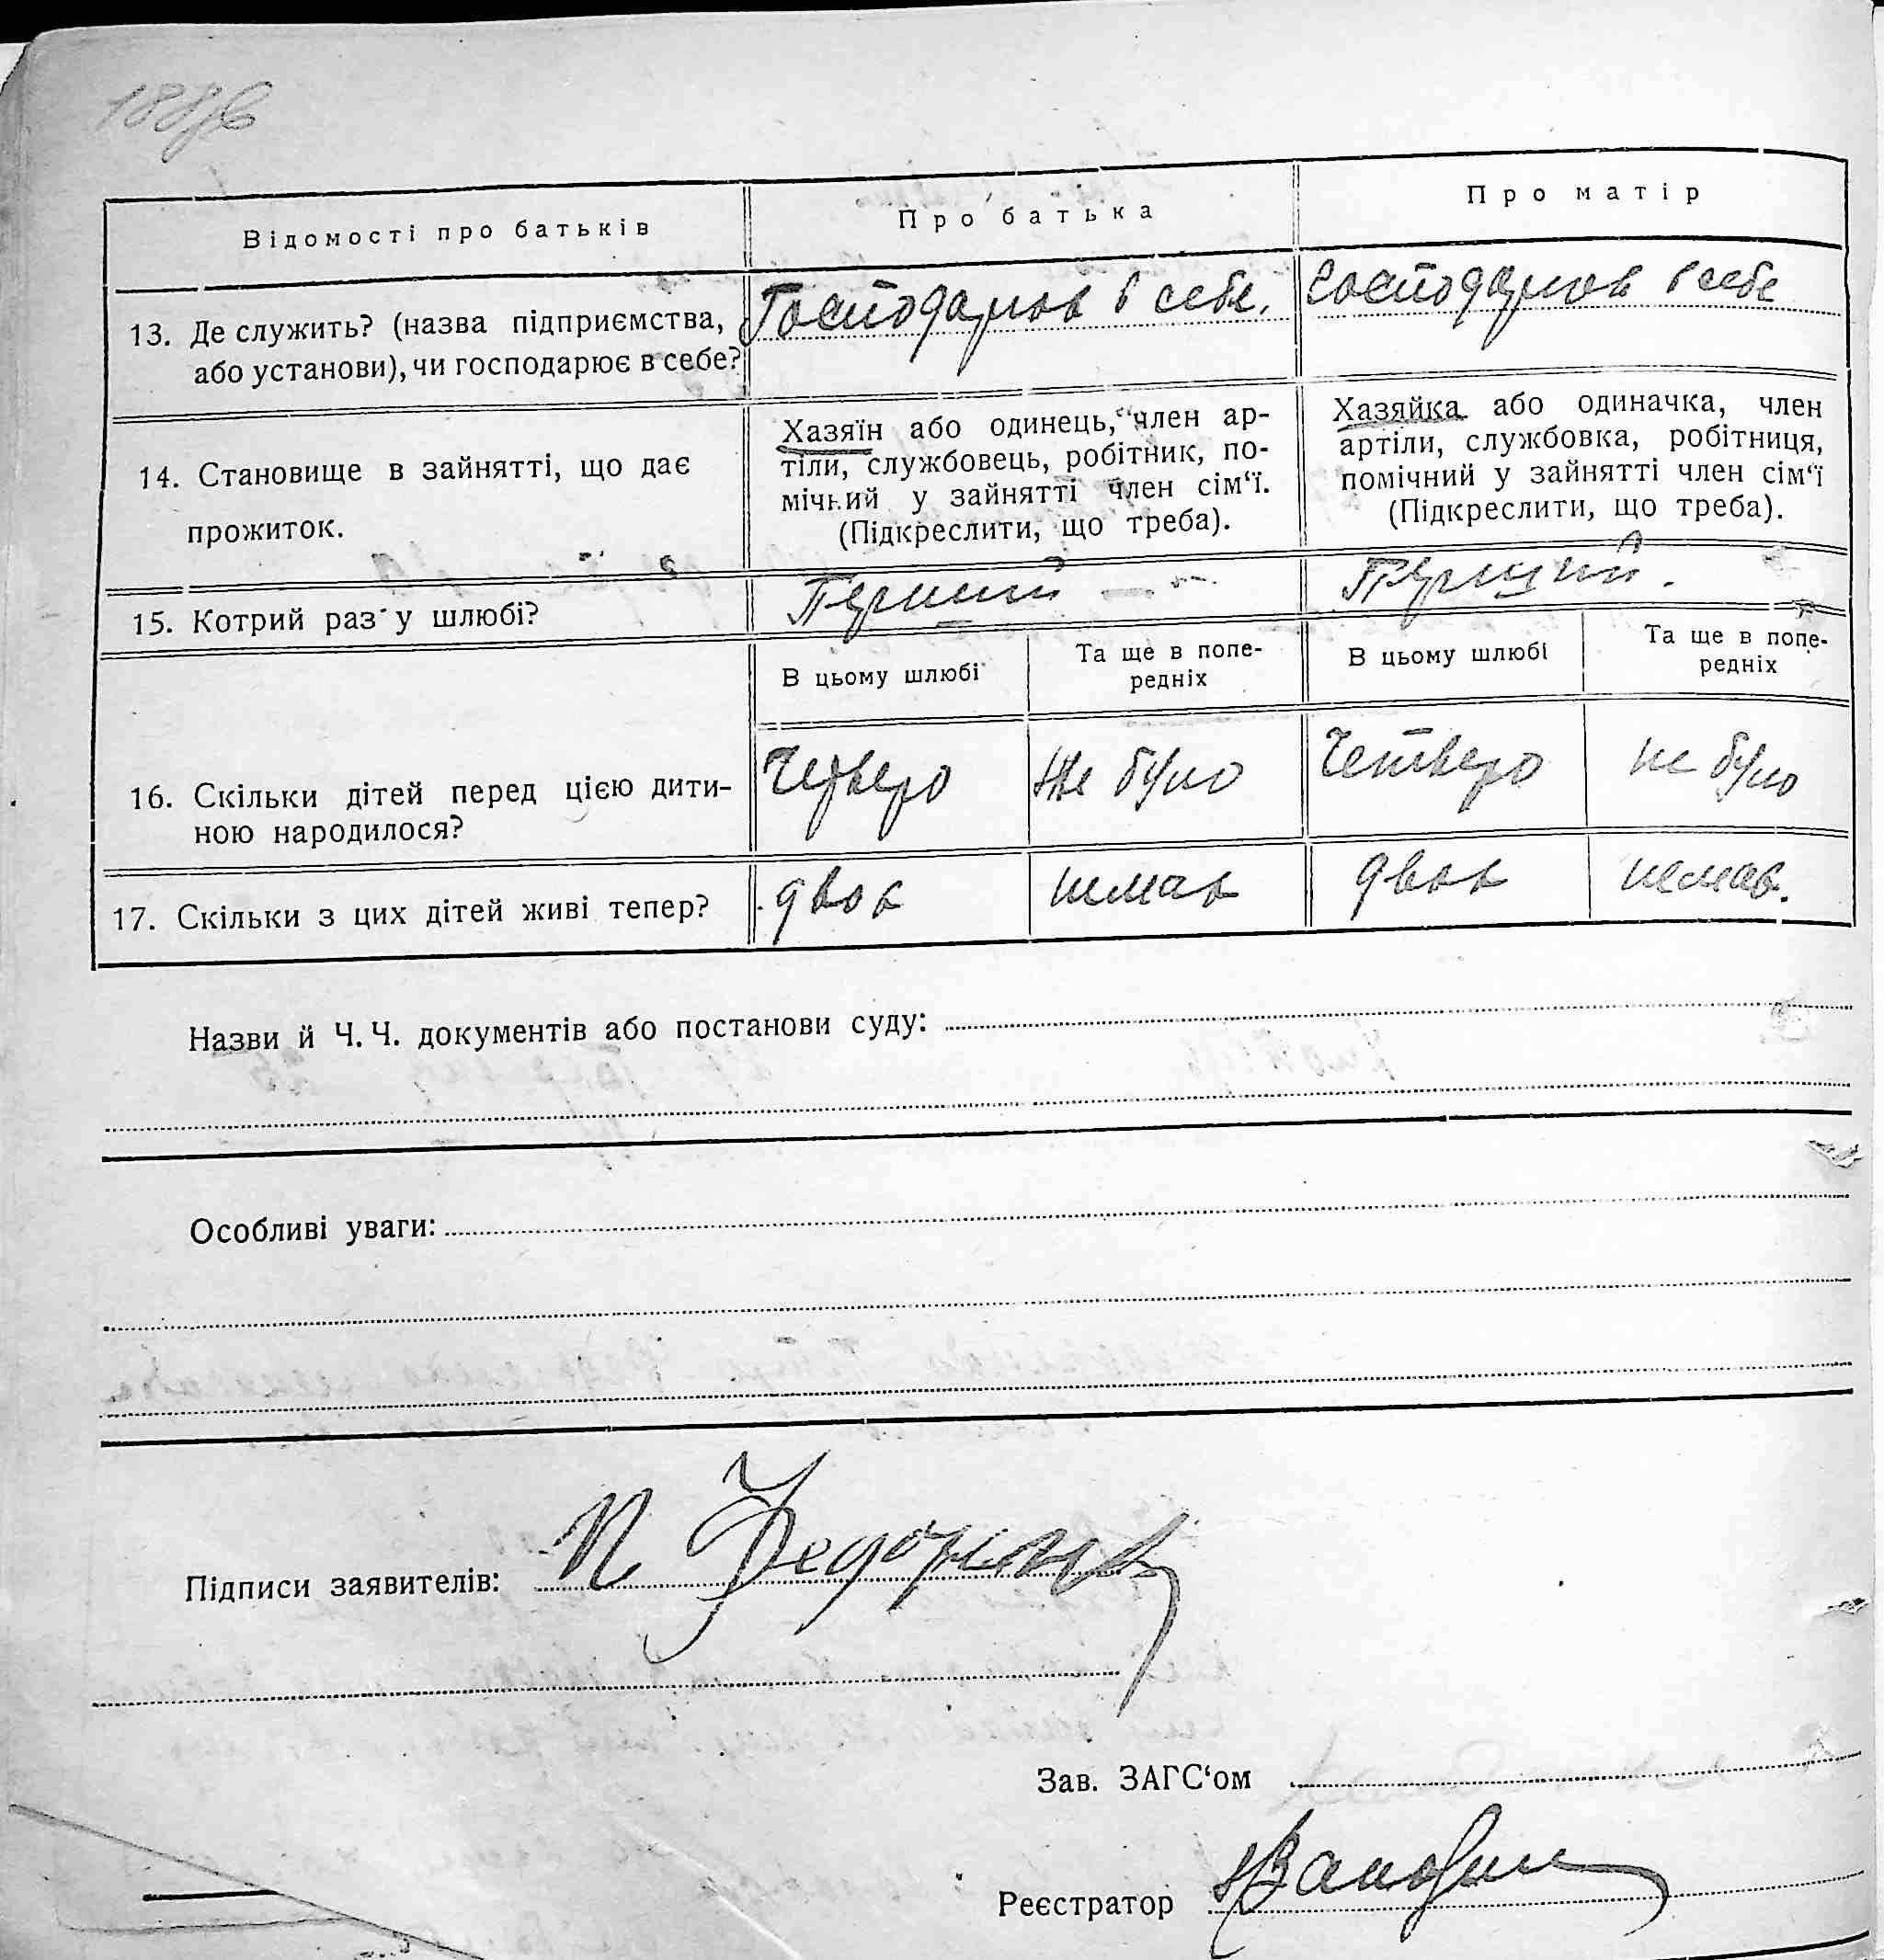 188зв
Відомості про батьків
Про батька
Про матір
13. Де служить? (назва підприємства,
або установи), чи господарює в себе?
Господарює в себе.
Господарює в себе
14. Становище в зайнятті, що дає
прожиток.
Хазяїн або одинець, член ар-
тіли, службовець, робітник, по-
мічний у зайнятті член сім‘ї.
(Підкреслити, що треба).
Хазяйка або одиначка, член
артіли, службовка, робітниця,
помічний у зайнятті член сім‘ї
(Підкреслити, що треба).
15. Котрий раз у шлюбі?
Перший
Перший.
В цьому шлюбі
Та ще в попе-
редніх
В цьому шлюбі
Та ще в попе-
редніх
16. Скільки дітей перед цією дити-
ною народилося?
Четверо
Не було
Четверо
не було
17. Скільки з цих дітей живі тепер?
двоє
немає
двоє
немає.
Назви й Ч. Ч. документів або постанови суду:
Особливі уваги:
Підписи заявителів:
П
Зав. ЗАГС‘ом
Реєстратор